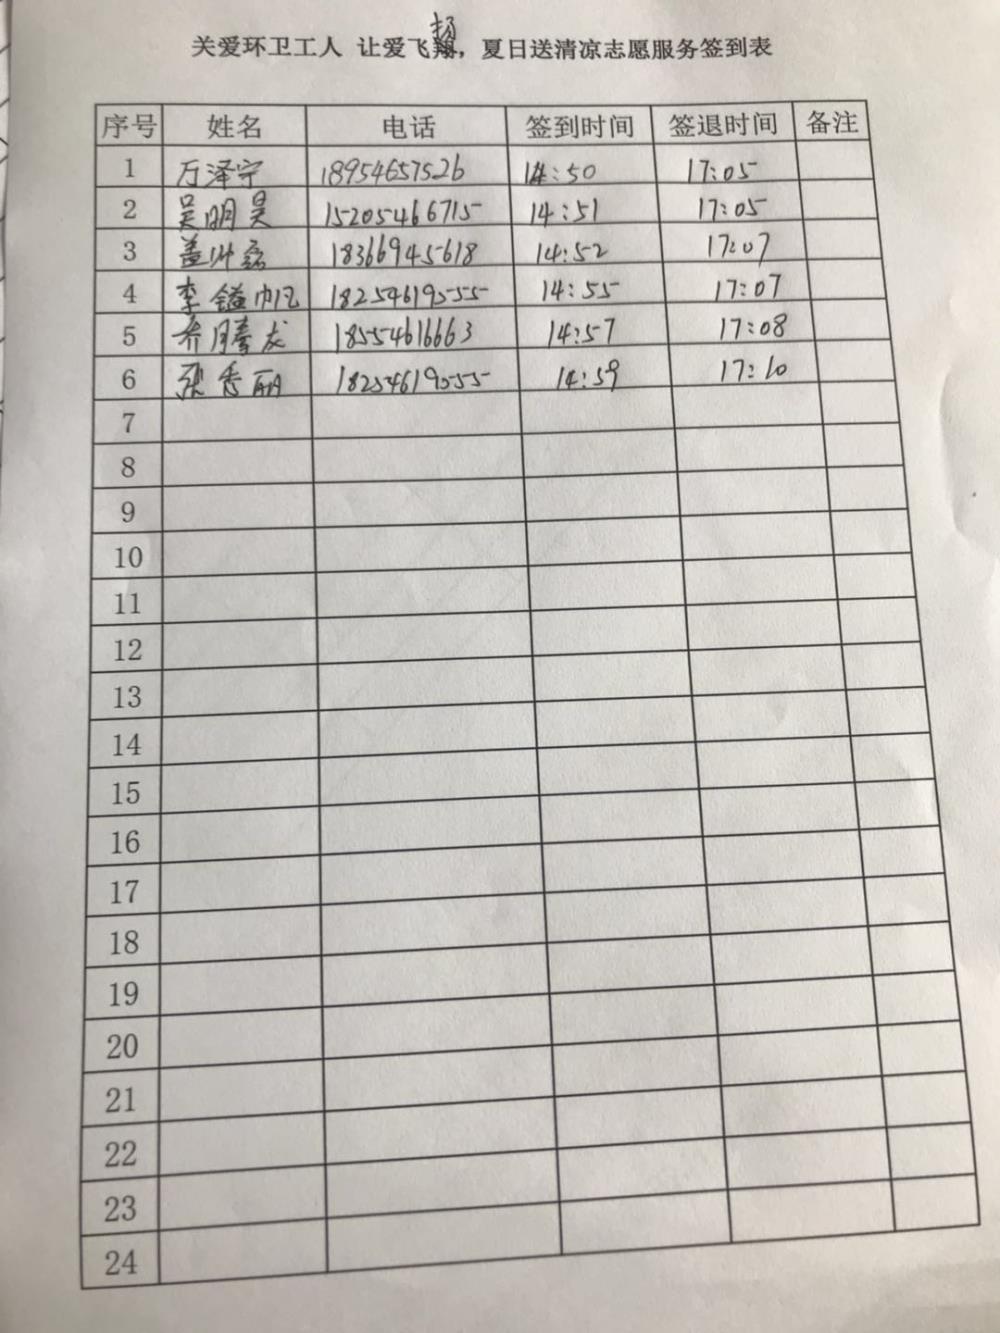 关爱环卫工人 让爱飞扬，夏日送清凉志愿服务签到表
序号 姓名 电话 签到时间 签退时间 备注
1 万泽宁 18954657526 14:50 17:05
2 吴明昊 15205466715 14:51 17:05
3 盖帅磊 18366945618 14:52 17:07
4 李镒帆 18254619555 14:55 17:07
5 乔腾龙 18554616663 14:57 17:08
6 张秀丽 18254619555 14:59 17:10
7
8
9
10
11
12
13
14
15
16
17
18
19
20
21
22
23
24